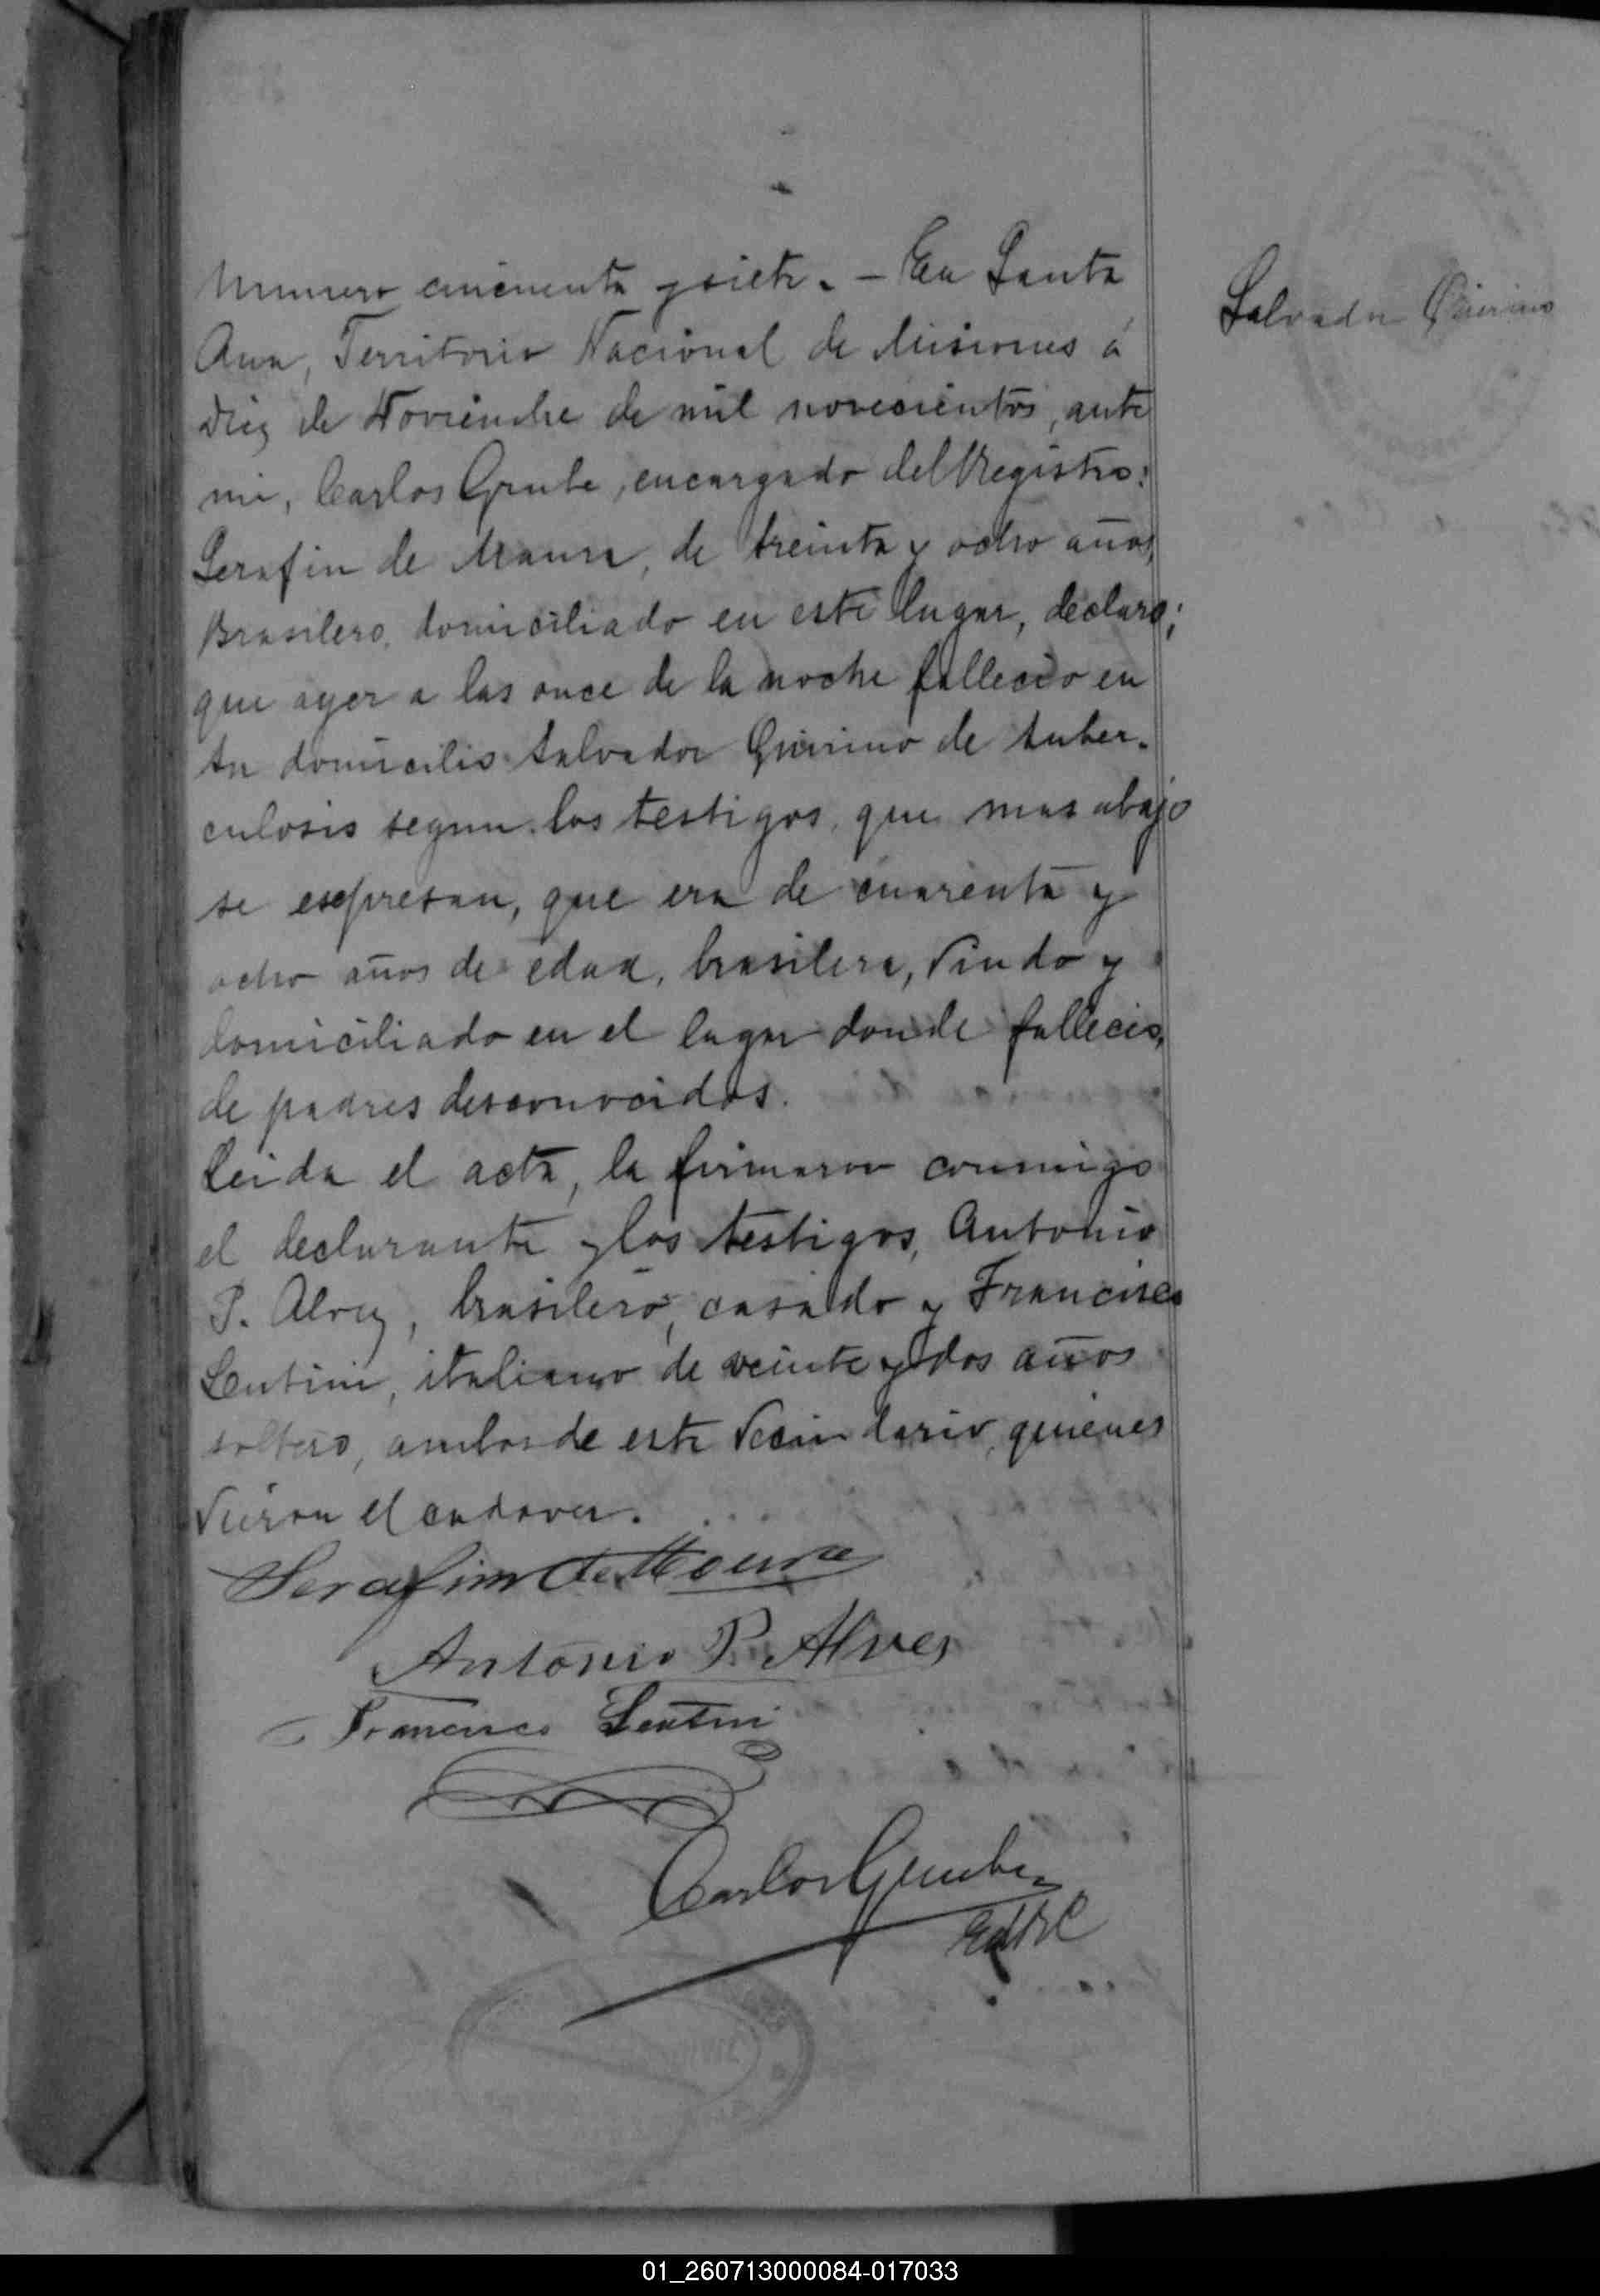 Numero cincuenta y siete. – En Santa
Salvador Quirino
Ana, Territorio Nacional de Misiones á
diez de Noviembre de mil novecientos, ante
mi, Carlos Grube, encargado del Registro:
Serafin de Maura, de treinta y ocho años,
Brasilero, domiciliado en este lugar, declaro;
que ayer a las once de la noche fallecio en
su domicilio Salvador Quirino de tuber-
culosis segun los testigos, que mas abajo
se expresan, que era de cuarenta y
ocho años de edad, brasilera, viudo y
domiciliado en el lugar donde fallecio,
de padres desconocidos.
Leida el acta, la firmaron conmigo
el declarante y los testigos, Antonio
P. Alvez, brasilero, casado y Francisco
Lentini, italiano de veinte y dos años
soltero, ambos de este vecindario, quienes
vieron el cadaver.
Serafim de Moura
Antonio P. Alves
Francisco Lentini
Carlos Grube
EdlRC
01_260713000084-017033